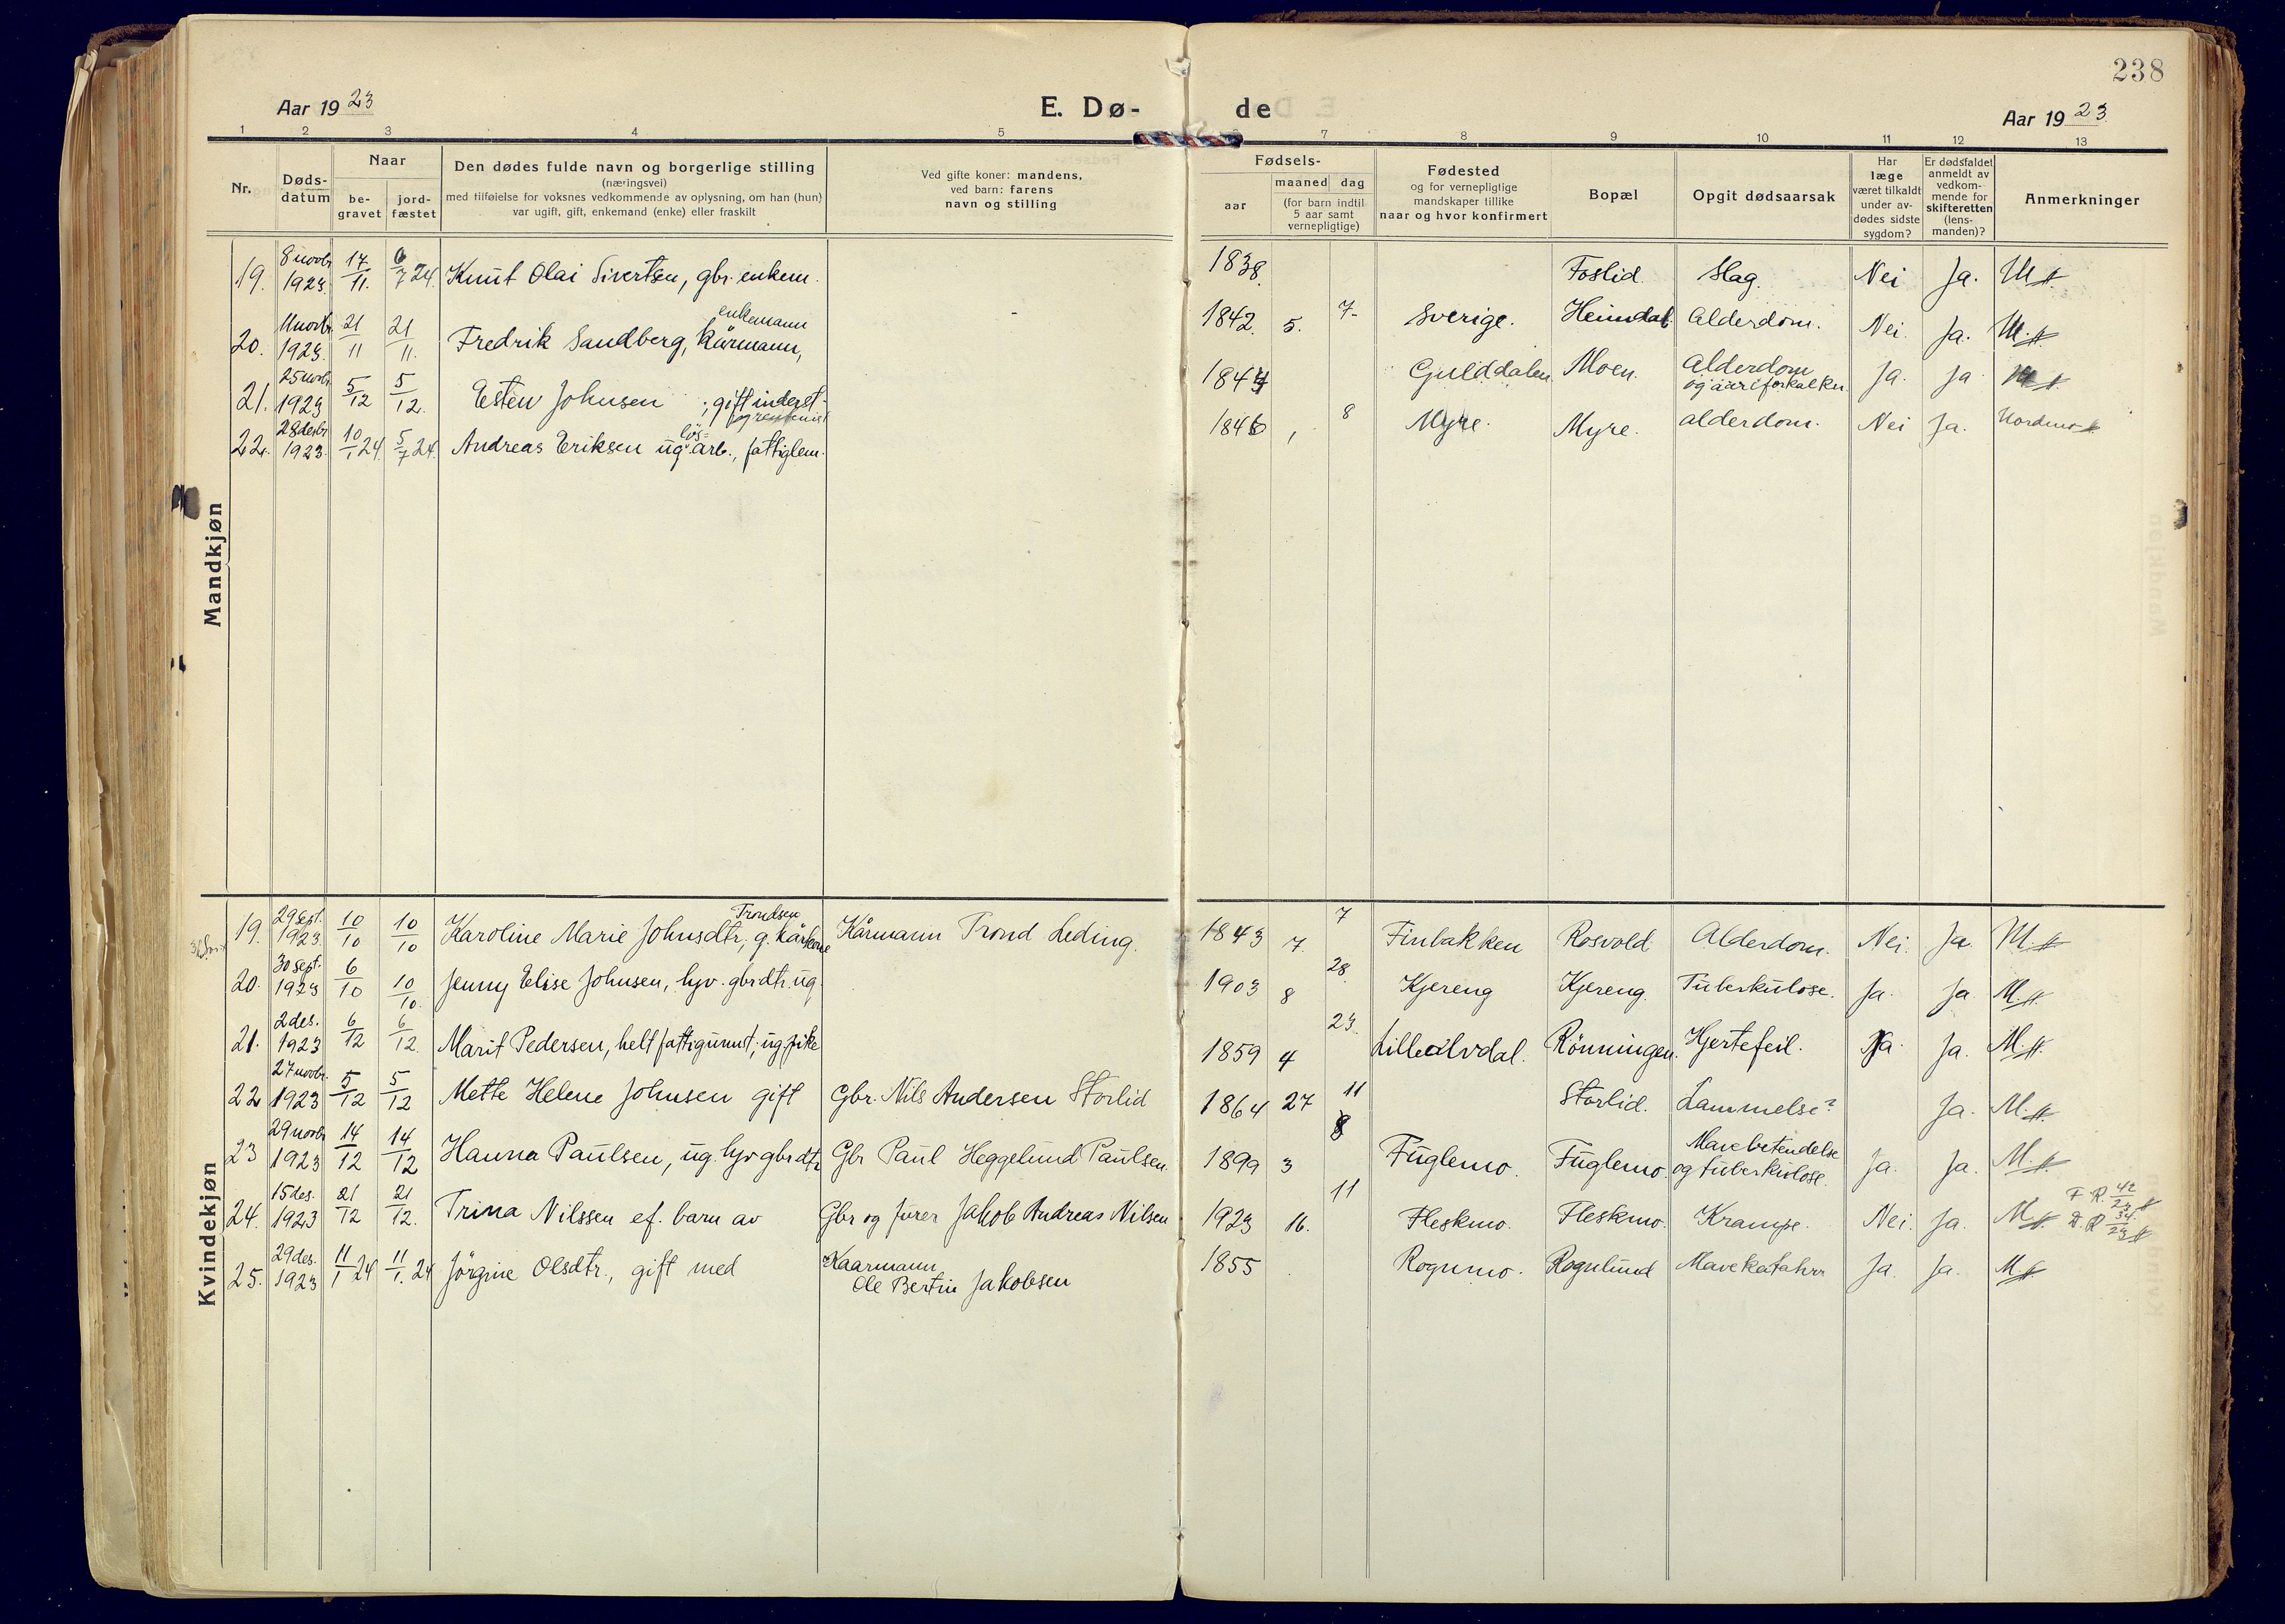 238
Aar 1923
E. Dø-
de
Aar 1923.
1 2 3 4 5 6 7 8 9 10 11 12 13
Nr.
Døds-
datum
Naar
be-
gravet
jord-
fæstet
Den dødes fulde navn og borgerlige stilling
(næringsvei)
med tilføielse for voksnes vedkommende av oplysning, om han (hun)
var ugift, gift, enkemand (enke) eller fraskilt
Ved gifte koner: mandens,
ved barn: farens
navn og stilling
Fødsels-
aar
maaned dag
(for barn indtil
5 aar samt
vernepligtige)
Fødested
og for vernepligtige
mandskaper tillike
naar og hvor konfirmert
Bopæl
Opgit dødsaarsak
Har
læge
været tilkaldt
under av-
dødes sidste
sygdom?
Er dødsfaldet
anmeldt av
vedkom-
mende for
skifteretten
(lens-
manden)?
Anmerkninger
Mandkjøn
19. 8 novbr 1923. 17/11. 6/7 24. Knut Olai Sivertsen, gbr. enkem. 1838. Foslid. Slag. Nei Ja. M.
20. 11 novbr 1923. 21/11 21/11. Fredrik Sandberg, kårmann, enkemann - 1842. 5. 7- Sverige. Heimdal. Alderdom. Nei. Ja. M.
21. 25 novbr 1923 5/12 5/12. Esten Johnsen ; gift inderst 1844 Gulddalen Moen. Alderdom og aareforkalkn. Ja. Ja
22. 28 desbr 1923. 10/1 24. 5/7 24. Andreas Eriksen ug. løs= arb., fattiglem. 1846 1 8 Myre. Myre. alderdom. Nei Ja. Nordmo
Kvindekjøn
19. 29 sept. 1923. 10/10 10/10 Karoline Marie Johnsdtr. Trondsen, g. kårkone Kårmann Trond Leding. 1843 7. 7 Finbakken Rosvold Alderdom. Nei. Ja. M.
20. 30 sept. 1923 6/10 10/10. Jenny Elise Johnsen, hjv. gbrdtr. ug. 1903 8 28. Kjereng Kjereng. Tuberkulose. Ja. Ja M.
21. 2 des. 1923 6/12 6/12. Marit Pedersen, helt fattigunnst; ug. pike 1859 4 23. Lilleelvdal. Rönningen. Hjertefeil. Ja. Ja. M.
22 27 novbr. 1923 5/12 5/12 Mette Helene Johnsen gift Gbr. Nils Andersen Storlid 1864 27 11 Storlid. Lammelse? Ja. M.
23 29 novbr 1923 14/12 14/12 Hanna Paulsen, ug. hjv gbrdtr Gbr Paul Heggelund Paulsen 1899 3 8 Fuglemo. Fuglemo. Mavebetendelse og tuberkulose. Ja. Ja. M.
24. 15 des. 1923 21/12 21/12. Trina Nilssen ef. barn av Gbr og furer Jakob Andreas Nilsen 1923 16. 11 Fleskmo. Fleskmo. Krampe. Nei. Ja. M F. R. 42/23 D. R. 34/23
25. 29 des. 1923 11/1 24 11/1. 24 Jörgine Olsdtr., gift med Kaarmann Ole Bertin Jakobsen 1855 Rognmo. Rognlund Mavekatahrr Ja. Ja. M